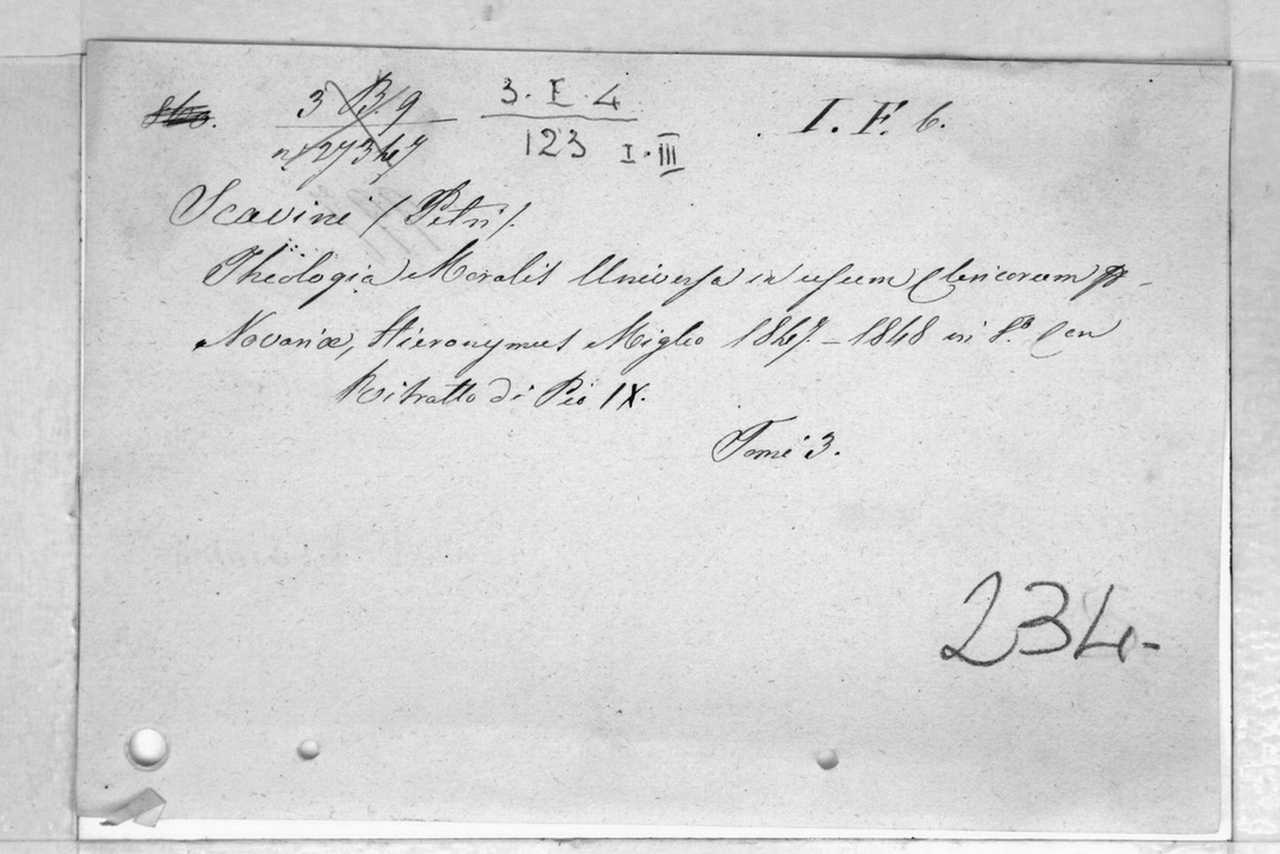 3 B. 9 3. E. 4 I. F. 6.
n. 27347 123 I. III
Scavini (Petri).
Theologia Moralis Universa in usum Clericorum
Novariæ, Hieronymus Miglio 1847. – 1848 in 8.º Con
Ritratto di Pio IX.
Tomi 3.
234-